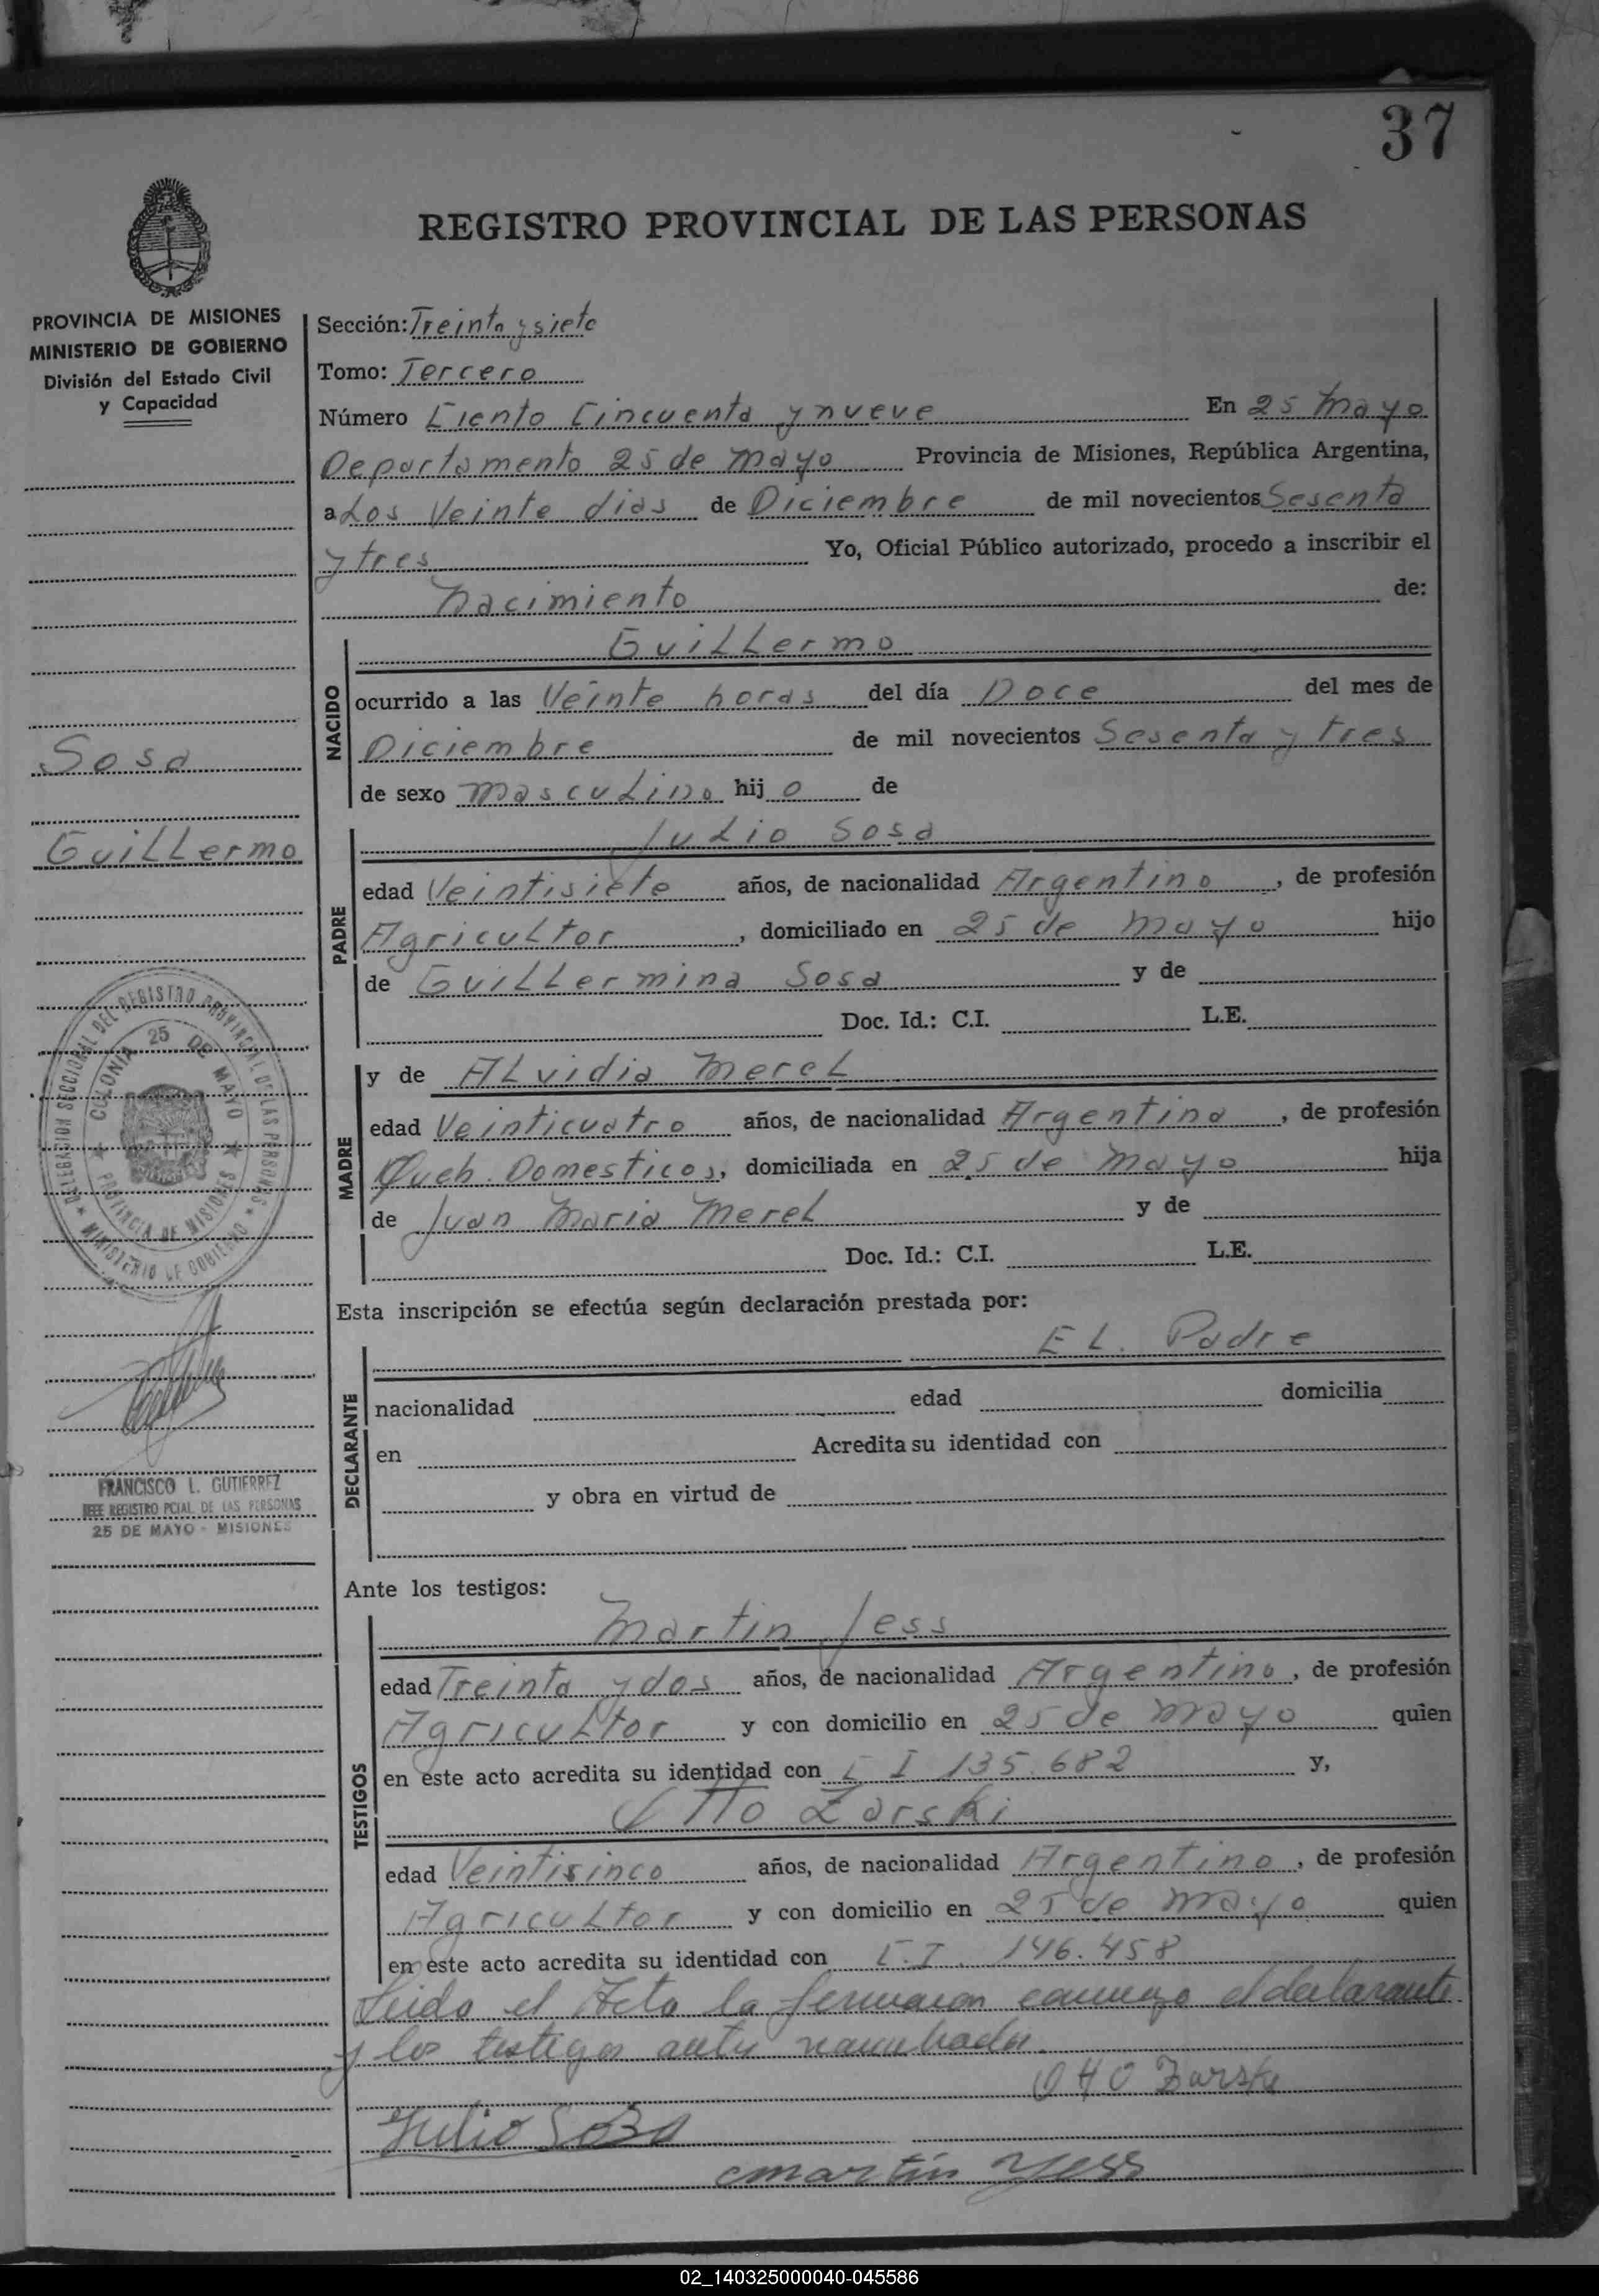 37
REGISTRO PROVINCIAL DE LAS PERSONAS
PROVINCIA DE MISIONES
MINISTERIO DE GOBIERNO
División del Estado Civil
y Capacidad
Sosa
Guillermo
DELEGACION SECCIONAL DEL REGISTRO PROVINCIAL DE LAS PERSONAS
MINISTERIO DE GOBIERNO
COLONIA 25 DE MAYO
PROVINCIA DE MISIONES
FRANCISCO L. GUTIERREZ
JEFE REGISTRO PCIAL. DE LAS PERSONAS
25 DE MAYO - MISIONES
Sección: Treinta y siete
Tomo: Tercero
Número Ciento Cincuenta y nueve En 25 Mayo
Departamento 25 de Mayo Provincia de Misiones, República Argentina,
a Los Veinte dias de Diciembre de mil novecientos Sesenta
y tres Yo, Oficial Público autorizado, procedo a inscribir el
Nacimiento de:
NACIDO
Guillermo
ocurrido a las Veinte horas del día Doce del mes de
Diciembre de mil novecientos Sesenta y tres
de sexo masculino hij o de
PADRE
Julio Sosa
edad Veintisiete años, de nacionalidad Argentino, de profesión
Agricultor, domiciliado en 25 de Mayo hijo
de Guillermina Sosa y de
Doc. Id.: C.I. L.E.
MADRE
y de Alvidia Merel
edad Veinticuatro años, de nacionalidad Argentina, de profesión
Queh. Domesticos, domiciliada en 25 de Mayo hija
de Juan Maria Merel y de
Doc. Id.: C.I. L.E.
Esta inscripción se efectúa según declaración prestada por:
DECLARANTE
El Padre
nacionalidad edad domicilia
en Acredita su identidad con
y obra en virtud de
Ante los testigos:
TESTIGOS
Martin Jess
edad Treinta y dos años, de nacionalidad Argentino, de profesión
Agricultor y con domicilio en 25 de Mayo quien
en este acto acredita su identidad con C I 135.682 y,
Otto Zarski
edad Veintisinco años, de nacionalidad Argentino, de profesión
Agricultor y con domicilio en 25 de Mayo quien
en este acto acredita su identidad con C.I. 146.458
Leida el Acta la firmaron conmigo el declarante
y los testigos antes nombrados.
Otto Zarski
Julio Soza
Martin Yess
02_140325000040-045586